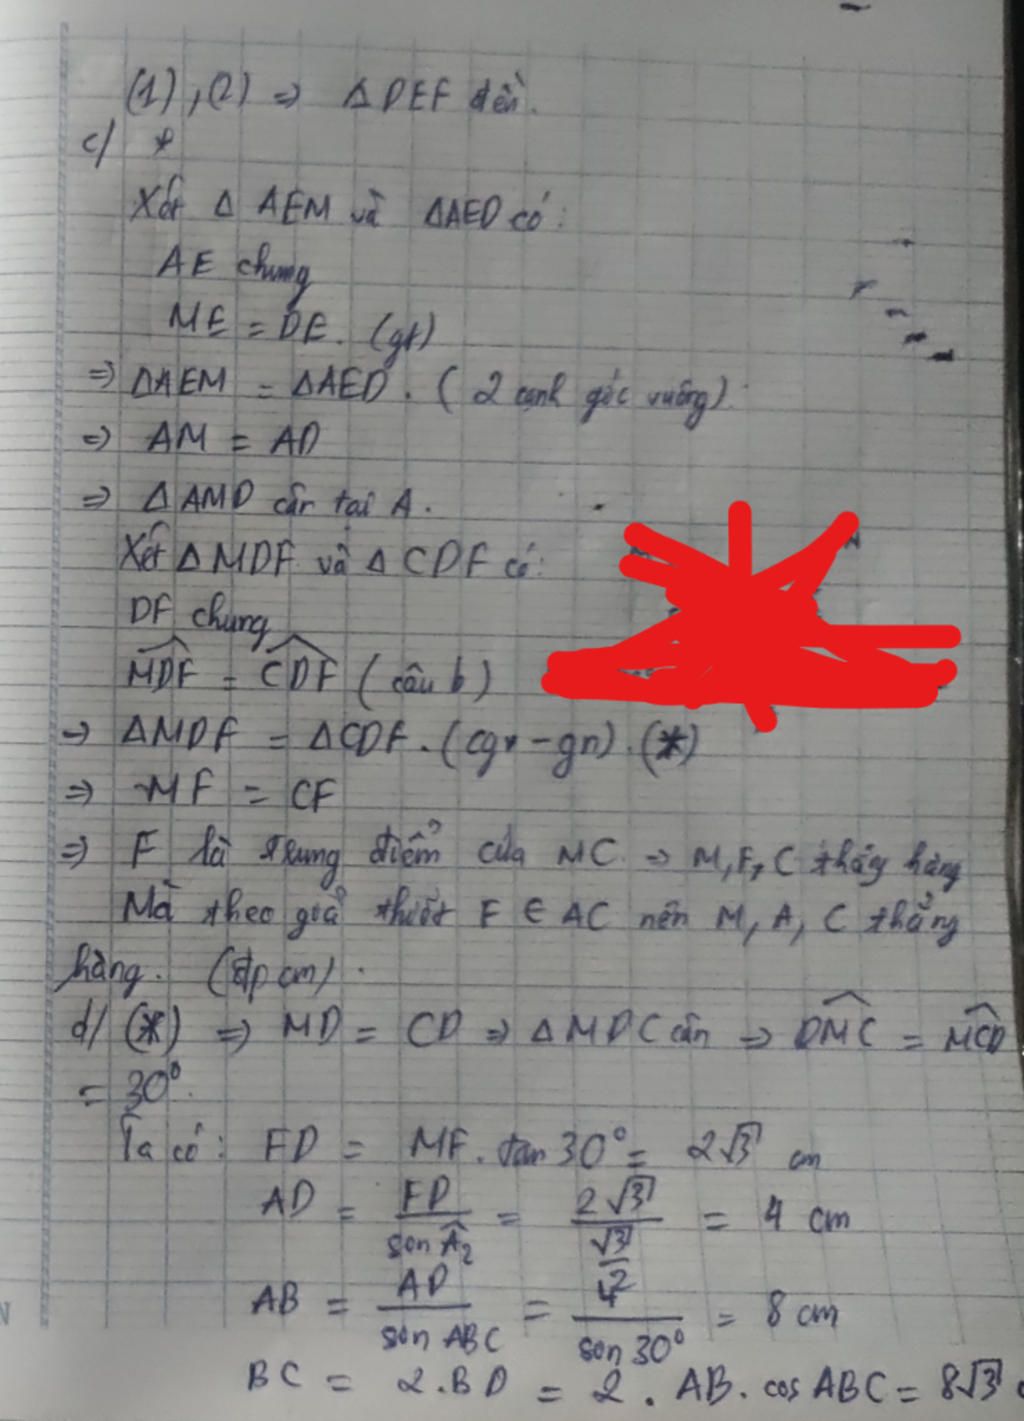 (1), (2) => Δ DEF đều.
c/ *
Xét Δ AEM và ΔAED có:
AE chung
ME = DE. (gt)
=> ΔAEM = ΔAED. ( 2 cạnh góc vuông).
=> AM = AD
=> Δ AMD cân tại A.
Xét Δ MDF và Δ CDF có:
DF chung
\widehat{MDF} = \widehat{CDF} ( câu b )
=> ΔMDF = ΔCDF. (cgv - gn). (*)
=> MF = CF
=> F là trung điểm của MC => M, F, C thẳg hàng
Mà theo giả thiết F ∈ AC nên M, A, C thẳng
hàng. (đpcm).
d/ (*) => MD = CD => Δ MDC cân => \widehat{DMC} = \widehat{MCD}
= 30°.
Ta có: FD = MF. tan 30° = 2√3 cm
AD = FD / sin \widehat{A}₂ = 2√3 / (√3/2) = 4 cm
AB = AD / sin ABC = 4 / sin 30° = 8 cm
BC = 2.BD = 2 . AB. cos ABC = 8√3 c